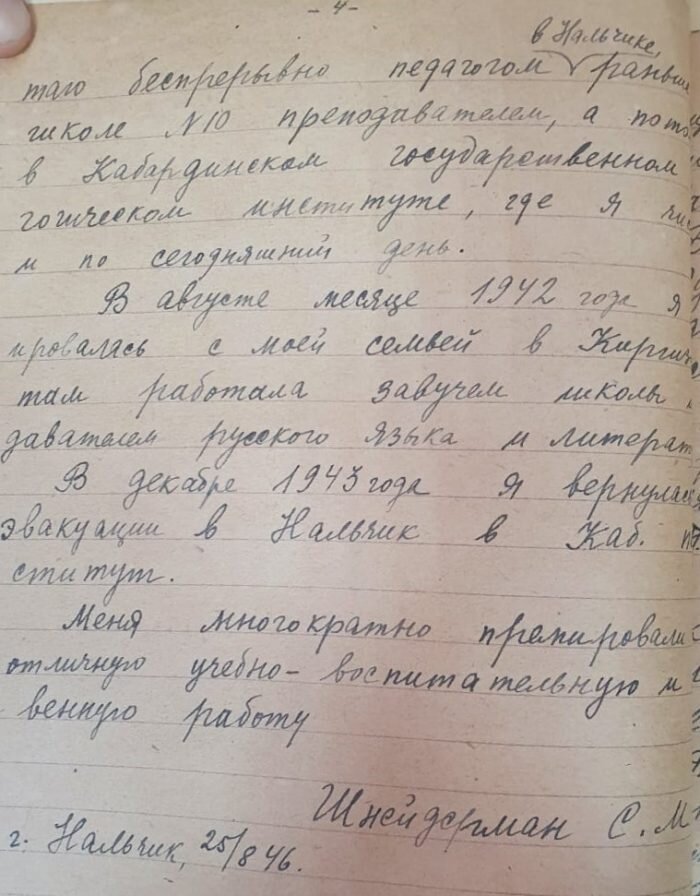 - 4 -
в Нальчике,
таю беспрерывно педагогом раньше
школе №10 преподавателем, а пото
в Кабардинском государственном
гогическом институте, где я чис
и по сегодняшний день.
В августе месяце 1942 года я
ировалась с моей семьей в Киргиз
там работала завучем школы
давателем русского языка и литерат
В декабре 1943 года я вернулась
эвакуации в Нальчик в Каб. п
ститут.
Меня многократно премировали
отличную учебно-воспитательную и
венную работу
Шнейдерман С. М
г. Нальчик, 25/8 46.